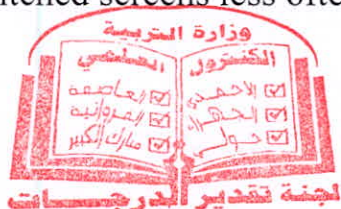 itched screens less ofte
وزارة التربية
الكنترول العلمي
الأحمدي
الجهراء
حولي
العاصمة
الفروانية
مبارك الكبير
لجنة تقدير الدرجات